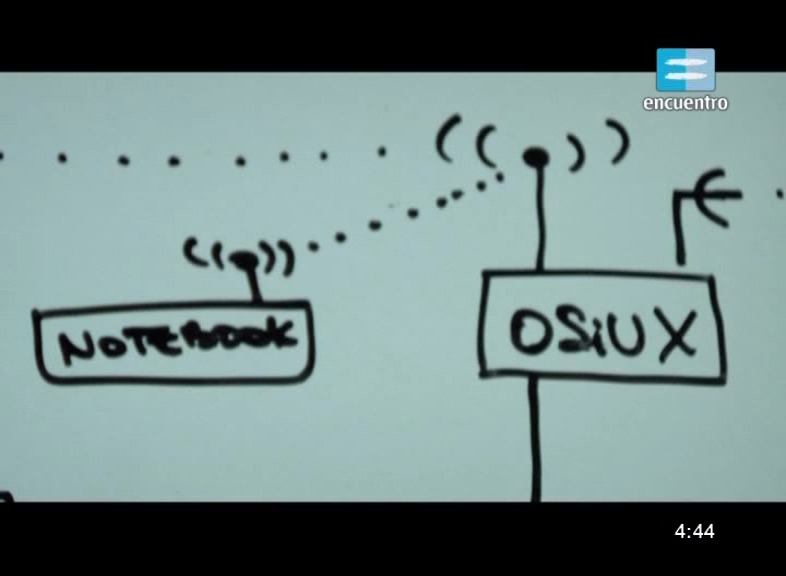 encuentro
NOTEBOOK
OSiUX
4:44